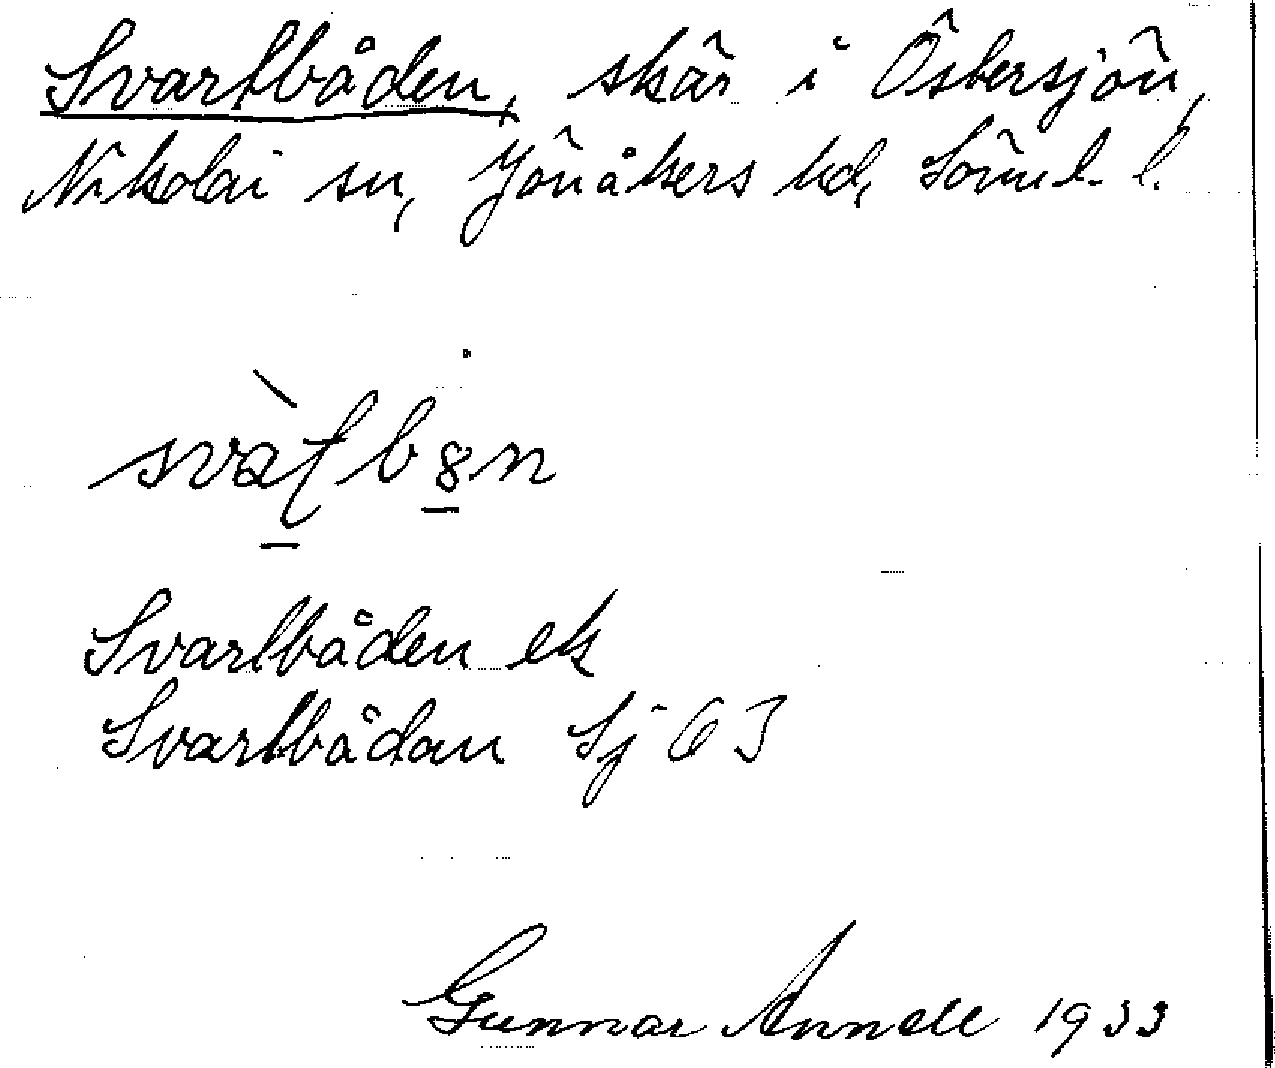 Svartbåden, skär i Östersjön,
Nikolai sn, Jönåkers hd, Sörml. l.
Svartbåden ek
Svartbådan Sj 63
Gunnar Annell 1933